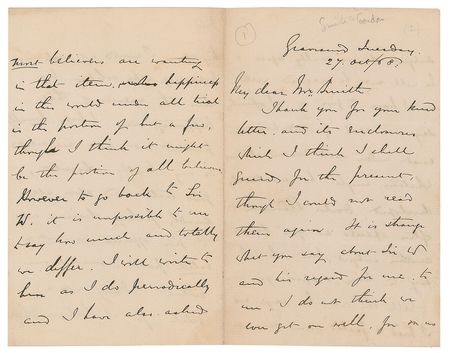 Gravesend Tuesday.
27. Oct/68
My dear Mrs Smith
Thank you for your kind
letter, and its enclosures
which I think I shall
for the present,
though I could not read
them again. It is strange
what you say about Sir W
and his regard for me. to
me. I do not think we
ever got on well, for on us
most believers are wanting
in that item, happiness
in this world under all trial
is the portion of but a few,
though I think it might
be the portion of all believers
However to go back to Sir
W. it is impossible to me
to say how much and totally
we differ. I will write to
him as I do periodically
and I have also asked